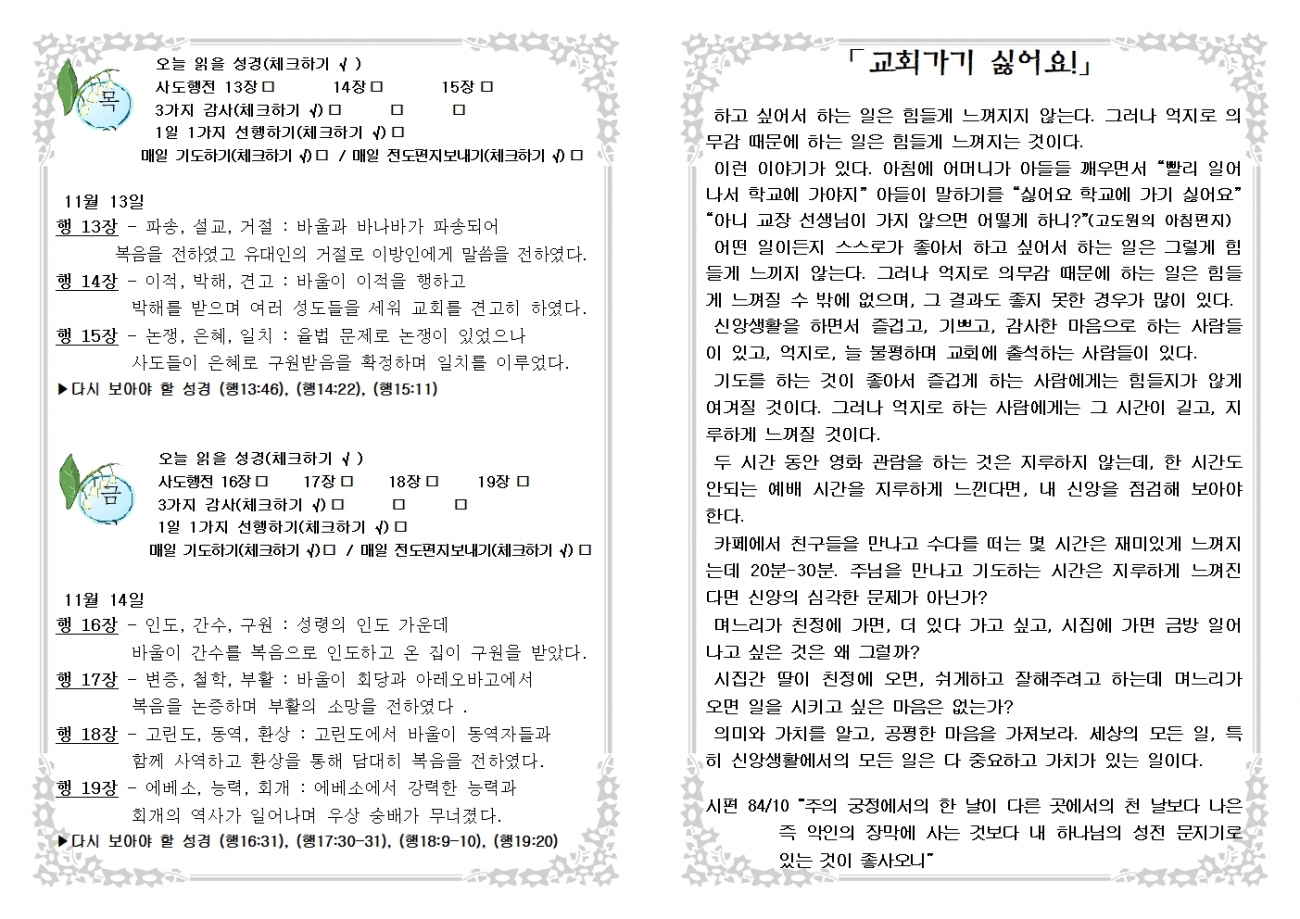 목
오늘 읽을 성경(체크하기 √ )
사도행전 13장 □ 14장 □ 15장 □
3가지 감사(체크하기 √) □ □ □
1일 1가지 선행하기(체크하기 √) □
매일 기도하기(체크하기 √) □ / 매일 전도편지보내기(체크하기 √) □
11월 13일
행 13장 - 파송, 설교, 거절 : 바울과 바나바가 파송되어
복음을 전하였고 유대인의 거절로 이방인에게 말씀을 전하였다.
행 14장 - 이적, 박해, 견고 : 바울이 이적을 행하고
박해를 받으며 여러 성도들을 세워 교회를 견고히 하였다.
행 15장 - 논쟁, 은혜, 일치 : 율법 문제로 논쟁이 있었으나
사도들이 은혜로 구원받음을 확정하며 일치를 이루었다.
▶다시 보아야 할 성경 (행13:46), (행14:22), (행15:11)
금
오늘 읽을 성경(체크하기 √ )
사도행전 16장 □ 17장 □ 18장 □ 19장 □
3가지 감사(체크하기 √) □ □ □
1일 1가지 선행하기(체크하기 √) □
매일 기도하기(체크하기 √) □ / 매일 전도편지보내기(체크하기 √) □
11월 14일
행 16장 - 인도, 간수, 구원 : 성령의 인도 가운데
바울이 간수를 복음으로 인도하고 온 집이 구원을 받았다.
행 17장 - 변증, 철학, 부활 : 바울이 회당과 아레오바고에서
복음을 논증하며 부활의 소망을 전하였다 .
행 18장 - 고린도, 동역, 환상 : 고린도에서 바울이 동역자들과
함께 사역하고 환상을 통해 담대히 복음을 전하였다.
행 19장 - 에베소, 능력, 회개 : 에베소에서 강력한 능력과
회개의 역사가 일어나며 우상 숭배가 무너졌다.
▶다시 보아야 할 성경 (행16:31), (행17:30-31), (행18:9-10), (행19:20)
「교회가기 싫어요!」
하고 싶어서 하는 일은 힘들게 느껴지지 않는다. 그러나 억지로 의
무감 때문에 하는 일은 힘들게 느껴지는 것이다.
이런 이야기가 있다. 아침에 어머니가 아들들 깨우면서 “빨리 일어
나서 학교에 가야지” 아들이 말하기를 “싫어요 학교에 가기 싫어요”
“아니 교장 선생님이 가지 않으면 어떻게 하니?”(고도원의 아침편지)
어떤 일이든지 스스로가 좋아서 하고 싶어서 하는 일은 그렇게 힘
들게 느끼지 않는다. 그러나 억지로 의무감 때문에 하는 일은 힘들
게 느껴질 수 밖에 없으며, 그 결과도 좋지 못한 경우가 많이 있다.
신앙생활을 하면서 즐겁고, 기쁘고, 감사한 마음으로 하는 사람들
이 있고, 억지로, 늘 불평하며 교회에 출석하는 사람들이 있다.
기도를 하는 것이 좋아서 즐겁게 하는 사람에게는 힘들지가 않게
여겨질 것이다. 그러나 억지로 하는 사람에게는 그 시간이 길고, 지
루하게 느껴질 것이다.
두 시간 동안 영화 관람을 하는 것은 지루하지 않는데, 한 시간도
안되는 예배 시간을 지루하게 느낀다면, 내 신앙을 점검해 보아야
한다.
카페에서 친구들을 만나고 수다를 떠는 몇 시간은 재미있게 느껴지
는데 20분-30분. 주님을 만나고 기도하는 시간은 지루하게 느껴진
다면 신앙의 심각한 문제가 아닌가?
며느리가 친정에 가면, 더 있다 가고 싶고, 시집에 가면 금방 일어
나고 싶은 것은 왜 그럴까?
시집간 딸이 친정에 오면, 쉬게하고 잘해주려고 하는데 며느리가
오면 일을 시키고 싶은 마음은 없는가?
의미와 가치를 알고, 공평한 마음을 가져보라. 세상의 모든 일, 특
히 신앙생활에서의 모든 일은 다 중요하고 가치가 있는 일이다.
시편 84/10 “주의 궁정에서의 한 날이 다른 곳에서의 천 날보다 나은
즉 악인의 장막에 사는 것보다 내 하나님의 성전 문지기로
있는 것이 좋사오니”